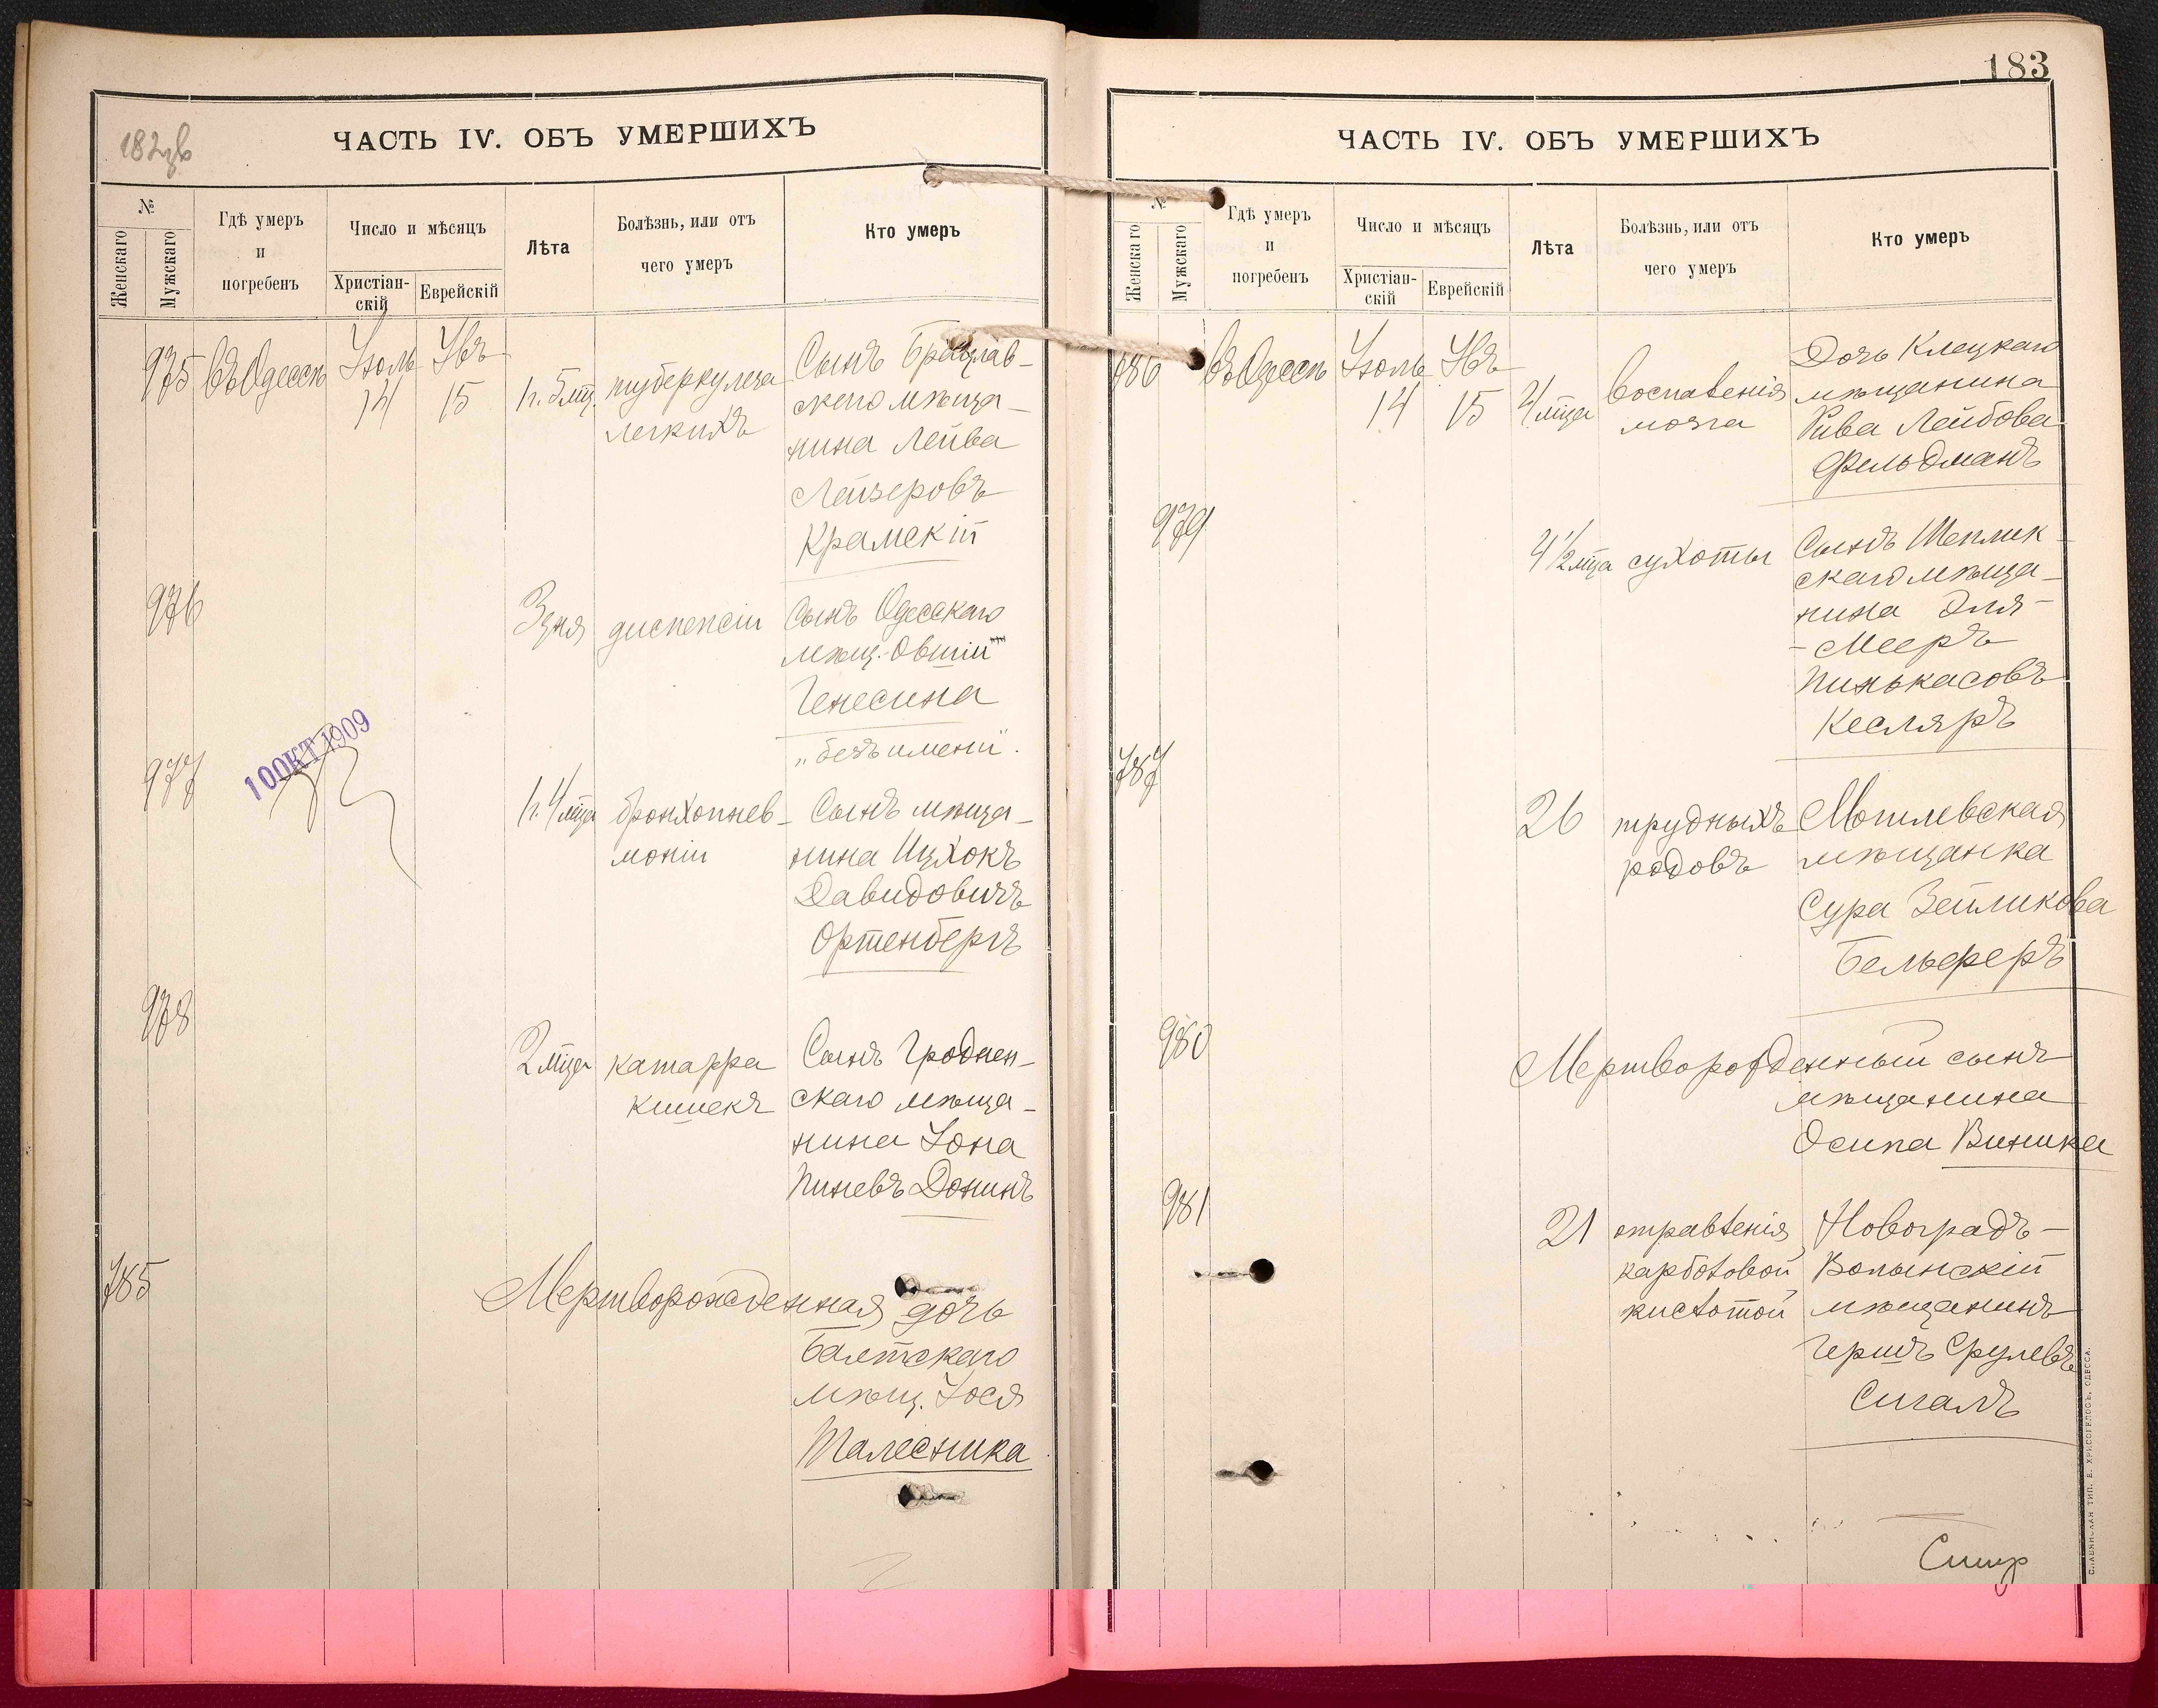 182 об
ЧАСТЬ IV. ОБЪ УМЕРШИХЪ
№
Женскаго
Мужскаго
Гдѣ умеръ
и
погребенъ
Число и мѣсяцъ
Христіан-
скій
Еврейскій
Лѣта
Болѣзнь, или отъ
чего умеръ
Кто умеръ
975 въ Одессѣ Іюль 14 Ювъ 15 1г. 5 мц. туберкулеза
легкихъ
Сынъ Брацлав-
скаго мѣща-
нина Лейва
Лейзеровъ
Крамскій
976 3 дня диспепсіи
Сынъ Одесскаго
мѣщ. Овшій
Генесина
„безъ имени".
10 ОКТ 1909
977 1г. 4 мца бронхопнев-
моніи
Сынъ мѣща-
нина Ицхокъ
Давидовичъ
Ортенбергъ
978 2 мца катарра
кишекъ
Сынъ Гроднен-
скаго мѣща-
нина Іона
Пиневъ Донинъ
785 Мертворожденная дочь
Балтскаго
мѣщ. Іося
Талесника
183
ЧАСТЬ IV. ОБЪ УМЕРШИХЪ
№
Женскаго
Мужскаго
Гдѣ умеръ
и
погребенъ
Число и мѣсяцъ
Христіан-
скій
Еврейскій
Лѣта
Болѣзнь, или отъ
чего умеръ
Кто умеръ
786 въ Одессѣ Іюль 14 Ювъ 15 4 мца воспаленія
мозга
Дочь Клецкаго
мѣщанина
Рива Лейбова
Фельдманъ
979 4 1/2 мца сухоты
Сынъ Теплик-
скаго мѣща-
нина Эля-
-Мееръ
Пинькасовъ
Кесляръ
787 26 трудныхъ
родовъ
Могилевская
мѣщанка
Сура Зейликова
Бельферъ
980 Мертворожденный сынъ
мѣщанина
Осипа Виника
981 21 отравленія
карболовой
кислотой
Новоградъ-
Волынскій
мѣщанинъ
Гершъ Срулевъ
Сигалъ
СЛАВЯНСКАЯ ТИП. Е. ХРИСОГЕЛОСЪ, ОДЕССА.